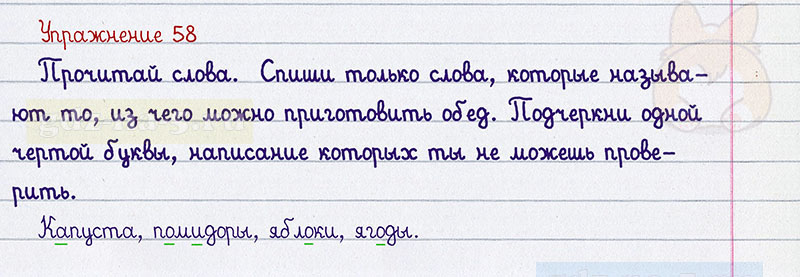 Упражнение 58
Прочитай слова. Спиши только слова, которые называ-
ют то, из чего можно приготовить обед. Подчеркни одной
чертой буквы, написание которых ты не можешь прове-
рить.
Капуста, помидоры, яблоки, ягоды.